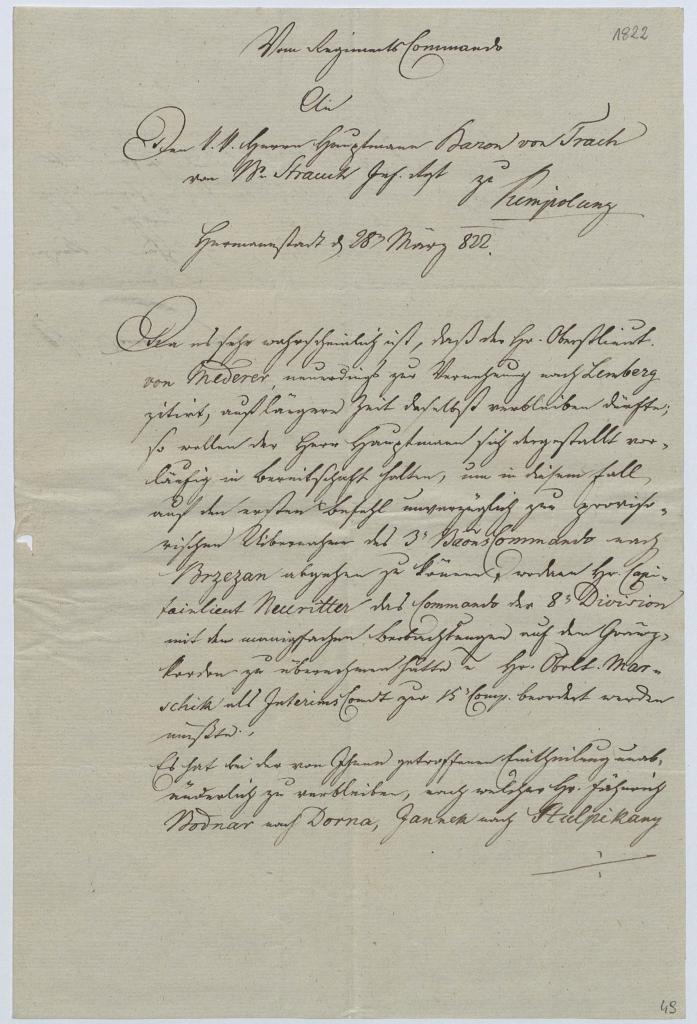 1822
Vom Regiments Commando
An
Den k. k. Herrn Hauptmann Baron von Trach
von Bn Strauch Inf. Rgt zu
Kimpolung
Hermannstadt d 28n März 822.
Da es sehr wahrscheinlich ist, daß der Hr. Oberstlieut.
von Mederer, neuerdings zur Vernehmung nach Lemberg
zitirt, auf längere Zeit daselbst verbleiben dürfte;
so wollen der Herr Hauptmann sich dergestallt vor-
läufig in Bereitschaft halten, um in diesem Fall
auf den ersten Befehl unverzüglich zur proviso-
rischen Uibernahme des 3n Baons Commando nach
Brzezan abgehen zu können, wodann Hr. Capi-
tainlieut Neuritter das Commando der 8n Division
mit den manigfachen Beobachtungen auf den Gränz-
kordon zu übernehmen hätte u Hr. Oblt. Mar-
schik als Interims Comdt zur 15n Comp. beordert werden
müßte.
Es hat bei der von Ihnen getroffenen Eintheilung unab-
änderlich zu verbleiben, nach welcher Hr. Fähnrich
Bodnar nach Dorna, Jannek nach Stulpikany
49